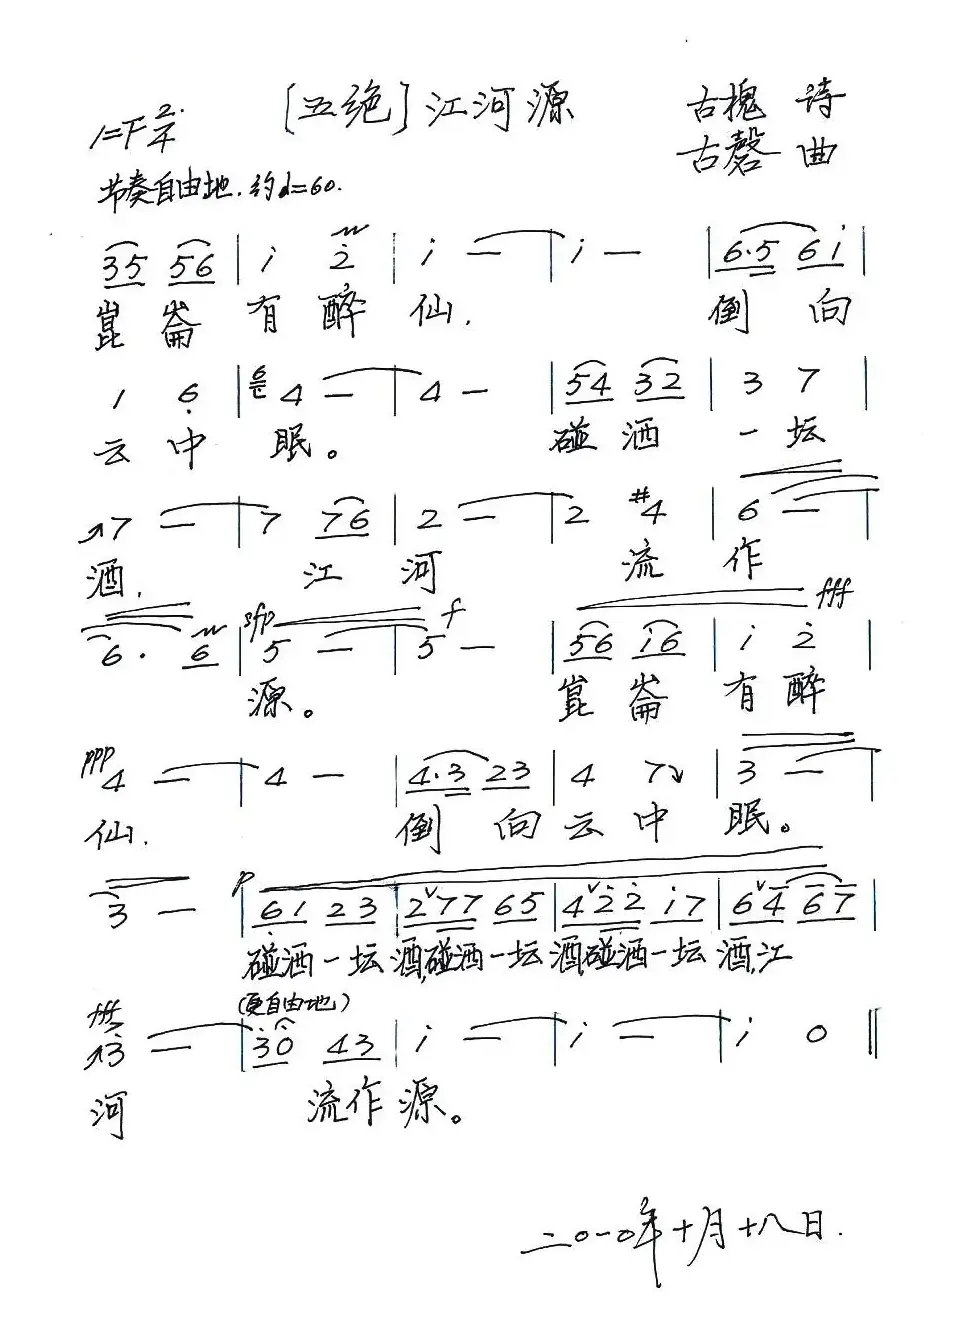 [五绝]江河源 古槐 诗
1=F 2/4 古磬 曲
节奏自由地.约d=60.
35 56 | i 2 | i — | i — | 6·5 6i |
崑崙有醉仙. 倒向
1 6 | 4 — | 4 — | 54 32 | 3 7 |
云中眠。 碰洒一坛
↗7 — | 7 76 | 2 — | 2 #4 | 6 — |
酒. 江河 流作
6· 6 | sfp 5 — | 5 — f | 56 i6 | i 2 | fff
源。 崑崙有醉
ppp 4 — | 4 — | 4·3 23 | 4 7↘ | 3 — |
仙. 倒向云中眠。
3 — | p 61 23 | 2∨77 65 | 4∨22 i7 | 6∨4 67 |
碰洒一坛酒,碰洒一坛酒,碰洒一坛酒,江
(更自由地)
fff ↗3 — | 30 43 | i — | i — | i 0 ‖
河 流作源。
二〇一〇年十月十八日.